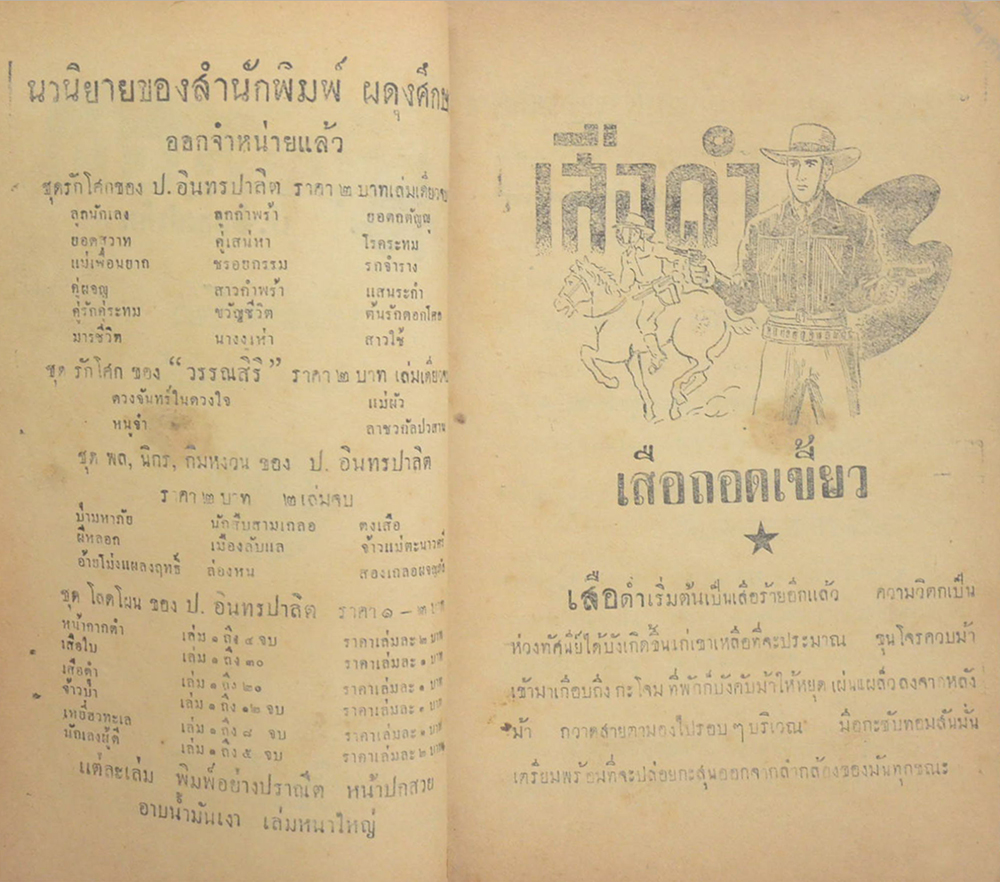 นวนิยายของสำนักพิมพ์ ผดุงศึกษ
ออกจำหน่ายแล้ว
ชุดรักโศกของ ป.อินทรปาลิต ราคา ๒ บาทเล่มเดียวจบ
ลูกนักเลง ลูกกำพร้า ยอดกตัญญู
ยอดสวาท คู่เสน่หา โรคระทม
แม่เพื่อนยาก ชรอยกรรม รกจำราง
คู่ผจญ สาวกำพร้า แสนระกำ
คู่รักคู่ระทม ขวัญชีวิต ต้นรักดอกโศก
มารชีวิต นางงูเห่า สาวใช้
ชุด รักโศก ของ “วรรณสิริ” ราคา ๒ บาท เล่มเดียวจบ
ดวงจันทร์ในดวงใจ แม่ผัว
หนูจ๋า
ชุด พล, นิกร, กิมหงวน ของ ป. อินทรปาลิต
ราคา ๒ บาท ๒ เล่มจบ
นักสืบสามเกลอ ดงเสือ
ผีหลอก เมืองลับแล จ้าวแม่ตะนาวศรี
อ้ายโม่งแผลงฤทธิ์ ล่องหน
ชุด โลดโผน ของ ป. อินทรปาลิต ราคา ๑ – ๒ บาท
หน้ากากดำ เล่ม ๑ ถึง ๔ จบ ราคาเล่มละ ๒ บาท
เสือใบ เล่ม ๑ ถึง ๓๐ ราคาเล่มละ ๑ บาท
เสือดำ เล่ม ๑ ถึง ๒๐ ราคาเล่มละ ๑ บาท
จ้าวป่า เล่ม ๑ ถึง ๑๒ จบ ราคาเล่มละ ๑ บาท
เหยี่ยวทะเล เล่ม ๑ ถึง ๘ จบ ราคาเล่มละ ๑ บาท
นักเลงผู้ดี เล่ม ๑ ถึง ๕ จบ ราคาเล่มละ ๒ บาท
แต่ละเล่ม พิมพ์อย่างปราณีต หน้าปกสวย
อาบน้ำมันเงา เล่มหนาใหญ่
เสือดำ
เสือถอดเขี้ยว
เสือดำเริ่มต้นเป็นเสือร้ายอีกแล้ว ความวิตกเป็น
ห่วงทัศนีย์ได้บังเกิดขึ้นแก่เขาเหลือที่จะประมาณ ขุนโจรควบม้า
เข้ามาเกือบถึง กะโจม ที่พักก็บังคับม้าให้หยุด เผ่นแผล็วลงจากหลัง
ม้า กวาดสายตามองไปรอบ ๆ บริเวณ มือกะชับทอมสันมั่น
เตรียมพร้อมที่จะปล่อยกะสุนออกจากลำกล้องของมันทุกขณะ